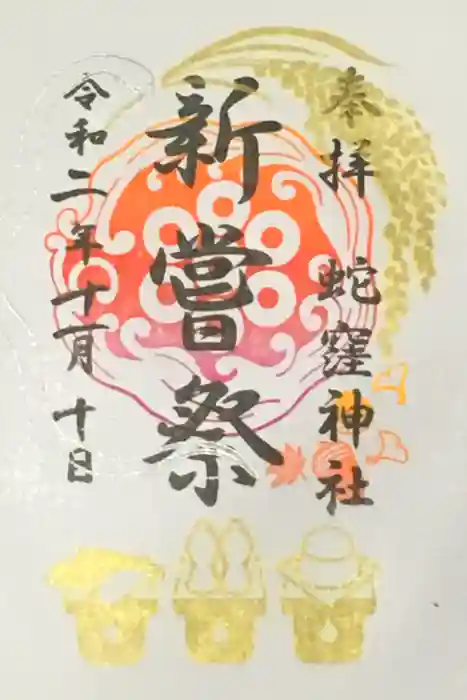 奉拝 蛇窪神社
新嘗祭
令和二年十一月十日